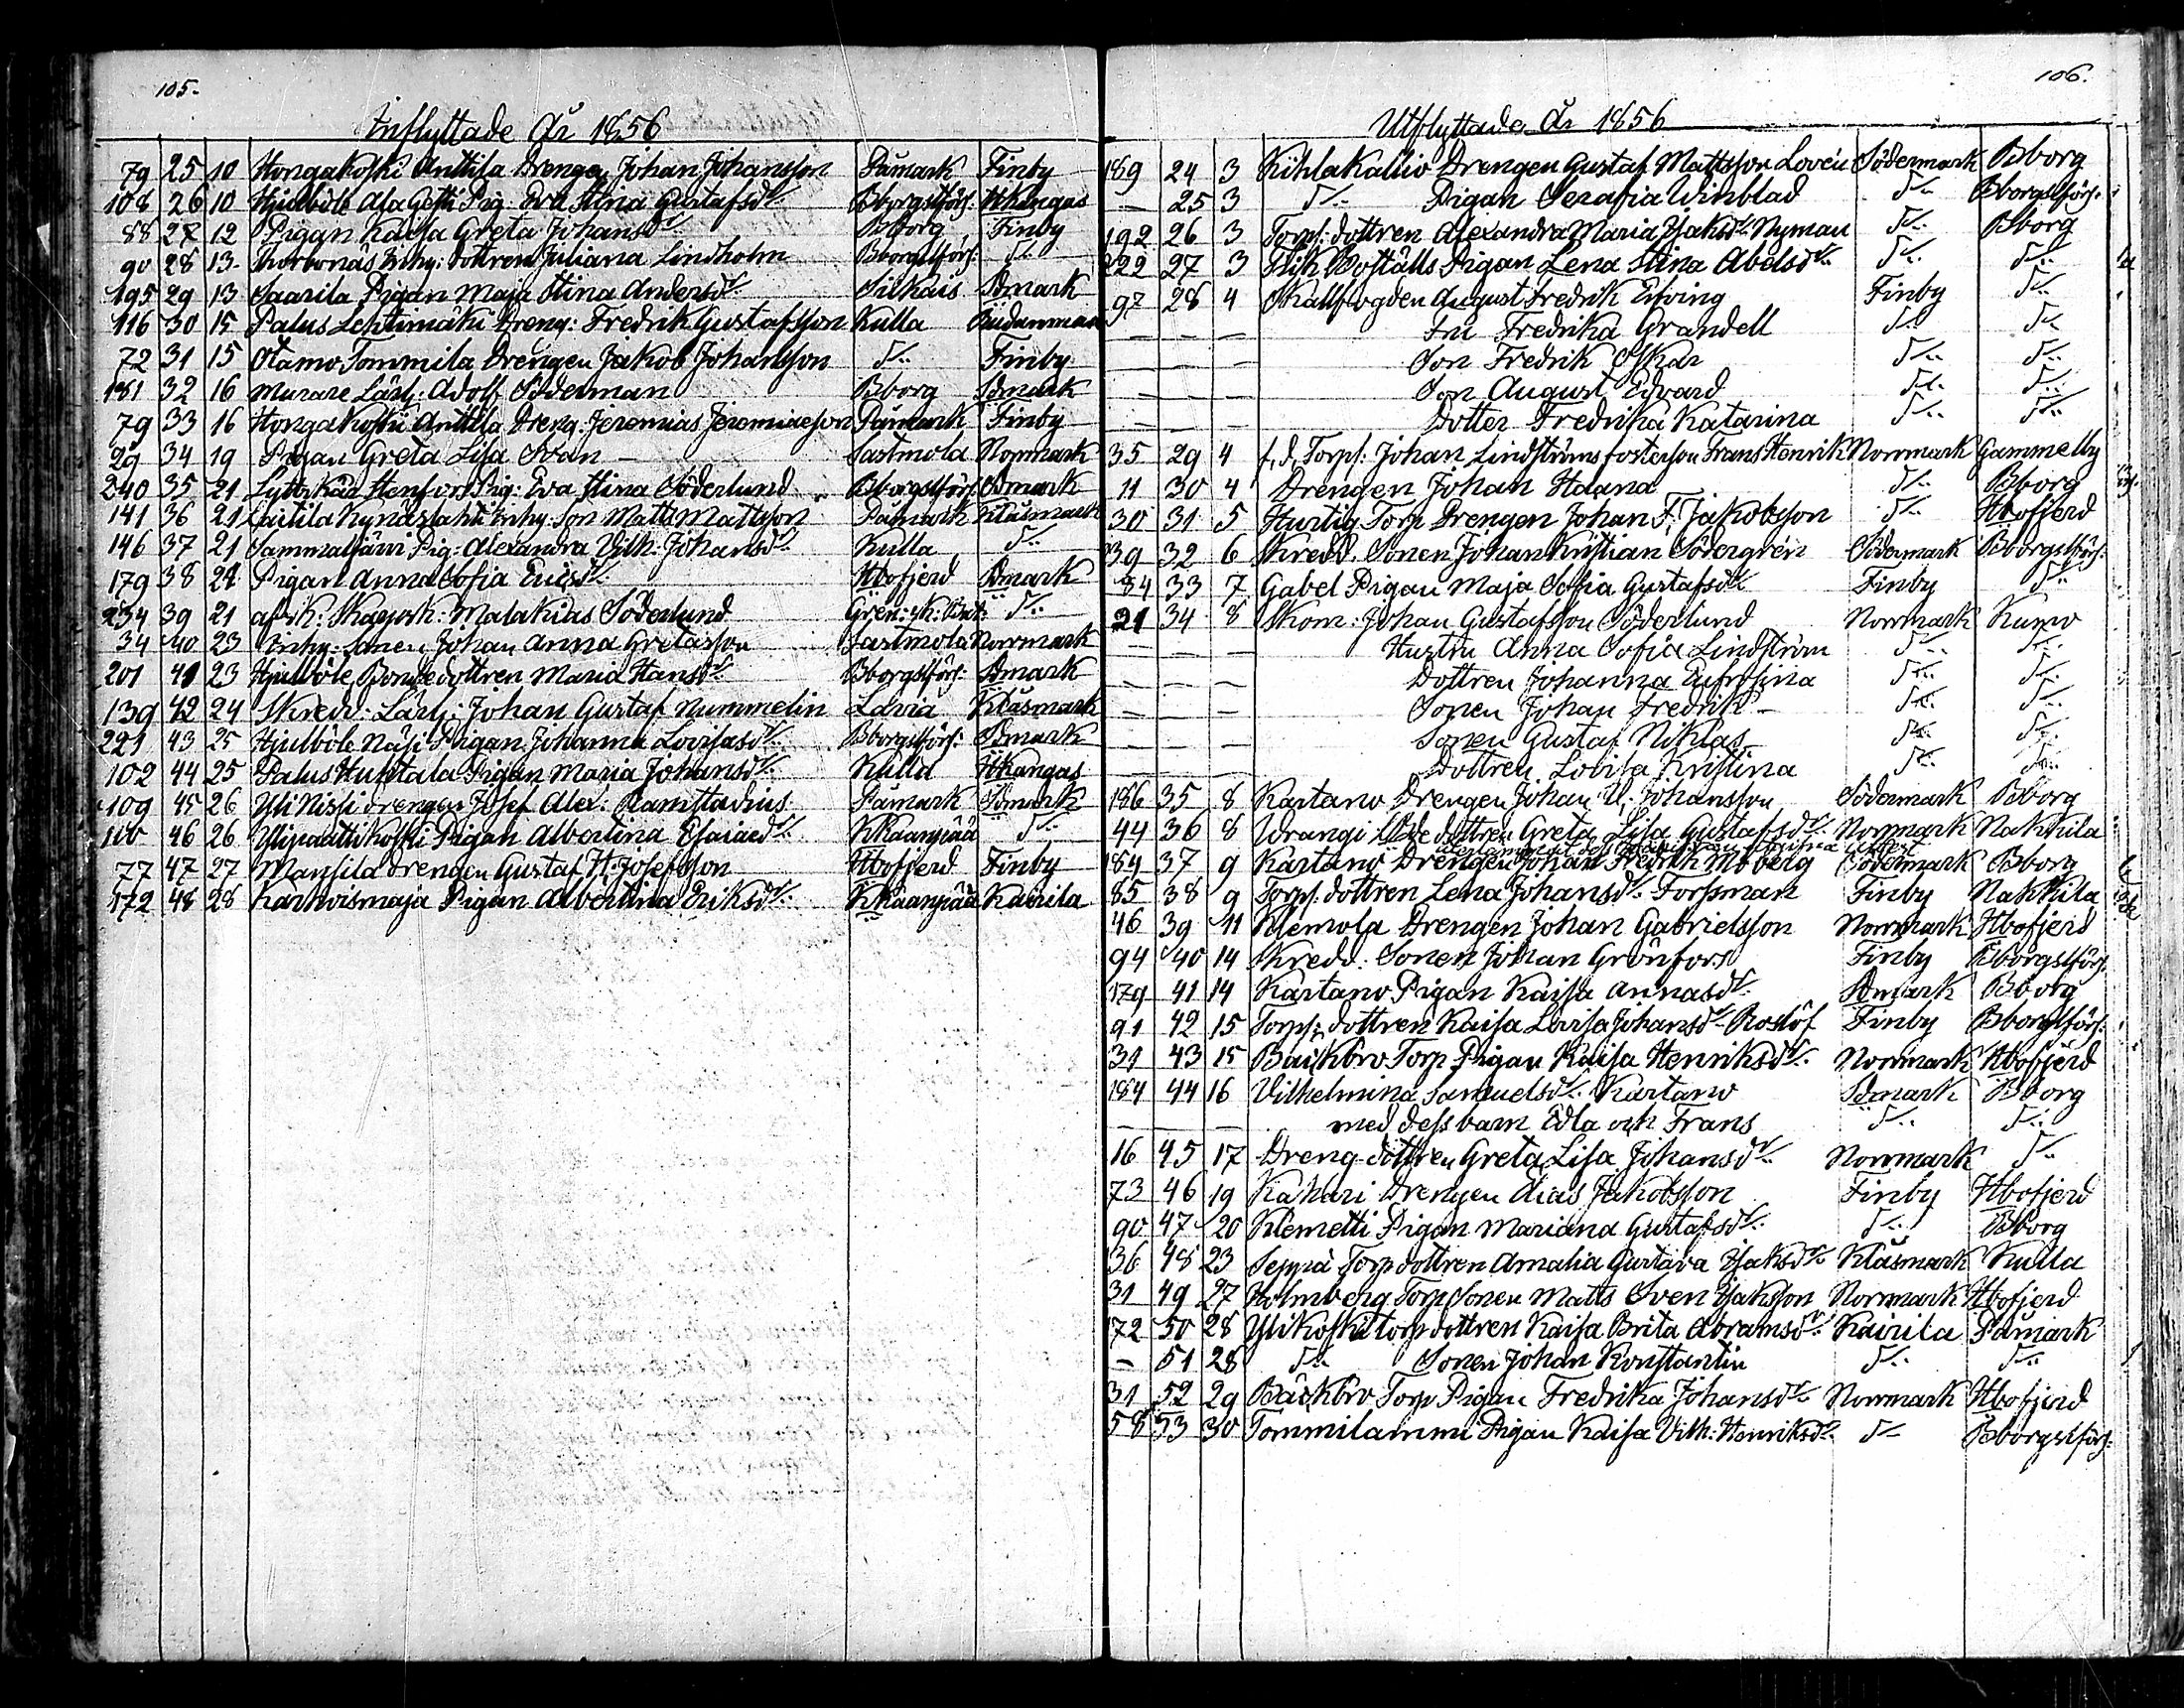 105.
Inflyttade År 1856
79 25 10 Hongakoski Anttila Drengen Johan Johansson Påmark Finby
108 26 10 Hjulböle Ala Getti Pig: Eva Stina Gustafsdr. Bborgslförs: Hkangas
88 27 12 Pigan Kaisa Greta Johansdr. Bborg Finby
90 28 13 Inhy: dottren Juliana Lindholm Bborgslförs: do
195 29 13 Saarila Pigan Maja Stina Andersdr. Siikais Sdmark
116 30 15 Palus Lehtimäki Dreng: Fredrik Gustafsson Kulla
72 31 15 Otamo Tommila Drengen Jakob Johansson do Finby
181 32 16 Murare Lärl: Adolf Söderman Bborg Sdmark
79 33 16 Hongakoski Anttila Dreng: Jeremias Jeremiaeson Påmark Finby
29 34 19 Pigan Greta Lisa Svan Sastmola Norrmark
240 35 21 Lyttskär Stenfors Pig: Eva Stina Söderlund Bborgslförs: Sdmark
141 36 21 Inhy: Son Matts Mattsson Påmark Klåsmark
146 37 21 Sammaljärvi Pig: Alexandra Vilh: Johansdr. Kulla do
179 38 21 Pigan Anna Sofia Ericsdr. Hbofjerd Sdmark
234 39 21 afsk: Malakias Söderlund do
34 40 23 Inhy: Sonen Johan Anna Gretasson Sastmola Norrmark
201 41 23 Hjulböle Bondedottren Maria Hansdr. Bborgslförs: Sdmark
139 42 24 Skredd: Lärl: Johan Gustaf Nummelin Lavia Klåsmark
221 43 25 Hjulböle Näsi Pigan Johanna Lovisasdr. Bborgslförs: Sdmark
102 44 25 Palus Huhtala Pigan Maria Johansdr. Kulla Hkangas
109 45 26 Yli Nissi drengen Josef Alex: Ramstadius Påmark Sdmark
100 46 26 Ylipaattikoski Pigan Albertina Esaiaedr. Kkaanpää do
77 47 27 Manfila drengen Gustaf H: Josefsson Hbofjerd Finby
172 48 28 Karhoismaja Pigan Albertina Eriksdr. Kkaanpää Kairila
106.
Utflyttade År 1856
189 24 3 Kihlakallio Drengen Gustaf Mattsson Lovén Södermark Bborg
— 25 3 do Pigan Serafia Winblad do Bborgslförs:
192 26 3 Torp: dottren Alexandra Maria Isaksdr. Nyman do Bborg
222 27 3 Flik Boställs Pigan Lena Stina Abelsdr. do do
97 28 4 Skallfogden August Fredrik Elfving Finby do
— — — Fru Fredrika Grandell do do
— — — Son Fredrik Oskar do do
— — — Son August Edvard do do
— — — Dotter Fredrika Katarina do do
35 29 4 f. d. Torp: Johan Lindströms fosterson Frans Henrik Norrmark Gammelby
11 30 4 Drengen Johan Haana do Bborg
30 31 5 Hurtig Torp Drengen Johan F. Jakobsson do Hbofjerd
39 32 6 Skredd. Sonen Johan Kristian Södergrén Södermark Bborgslförs:
34 33 7 Gabel Pigan Maja Sofia Gustafsdr. Finby do
21 34 8 Skom: Johan Gustafsson Söderlund Norrmark Kumo
— — — Hustru Anna Sofia Lindström do do
— — — Dottren Johanna Eufrosina do do
— — — Sonen Johan Fredrik do do
— — — Sonen Gustaf Niklas do do
— — — Dottren Lovisa Kristina do do
186 35 8 Kartano Drengen Johan V. Johansson Södermark Bborg
44 36 8 Wrangi Öde dottren Greta Lisa Gustafsdr. Norrmark Nakkila
184 37 9 Kartano Drengen Johan Fredrik Moberg Södermark Bborg
85 38 9 Torp: dottren Lena Johansdr. Forsman Finby Nakkila
46 39 11 Klemola Drengen Johan Gabrielsson Norrmark Hbofjerd
94 40 14 Skredd: Sonen Johan Grönfors Finby Bborgslförs:
179 41 14 Kartano Pigan Kaisa Annasdr. Sdmark Bborg
91 42 15 Torp: dottren Kaisa Lovisa Johansdr. Roslöf Finby Bborgslförs:
31 43 15 Bäckbro Torp Pigan Kaisa Henriksdr. Norrmark Hbofjerd
184 44 16 Vilhelmina Samuelsdr. Kartano Sdmark Bborg
— — — med dess barn Edla och Frans do do
16 45 17 Dreng dottren Greta Lisa Johansdr. Norrmark do
73 46 19 Kahari Drengen Elias Jakobsson Finby Hbofjerd
90 47 20 Klemetti Pigan Mariana Gustafsdr. do Bborg
136 48 23 Seppä Torp dottren Amalia Gustava Isaksdr. Klåsmark Kulla
31 49 27 Holmberg Torp Sonen Matts Sven Isaksson Norrmark Hbofjerd
172 50 28 Ylikoski torp dottren Kaisa Brita Abramsdr. Kairila Påmark
— 51 28 do Sonen Johan Konstantin do do
31 52 29 Bäckbro Torp Pigan Fredrika Johansdr. Norrmark Hbofjerd
58 53 30 Tommilammi Pigan Kaisa Vilh: Henriksdr. do Bborgslförs: